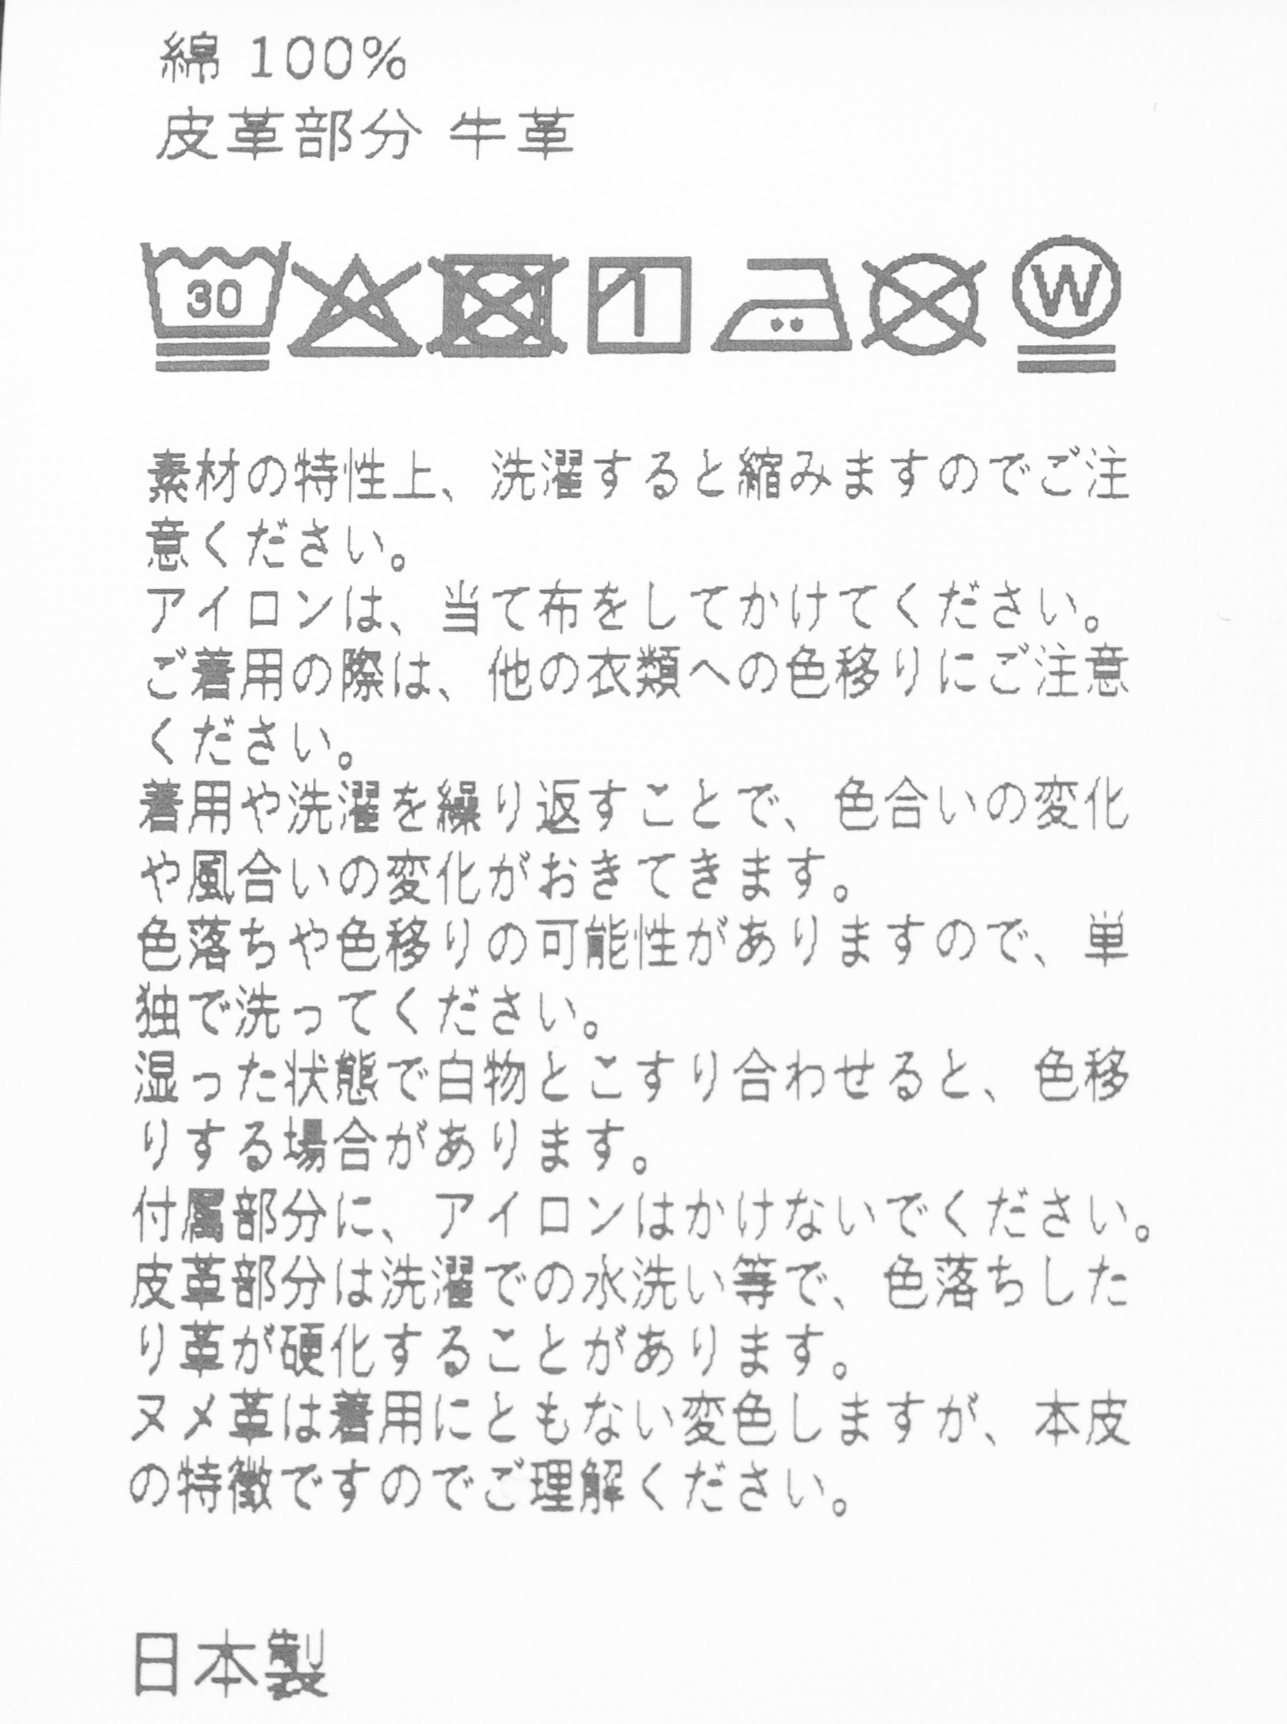 綿 100%
皮革部分 牛革
30
W
素材の特性上、洗濯すると縮みますのでご注
意ください。
アイロンは、当て布をしてかけてください。
ご着用の際は、他の衣類への色移りにご注意
ください。
着用や洗濯を繰り返すことで、色合いの変化
や風合いの変化がおきてきます。
色落ちや色移りの可能性がありますので、単
独で洗ってください。
湿った状態で白物とこすり合わせると、色移
りする場合があります。
付属部分に、アイロンはかけないでください。
皮革部分は洗濯での水洗い等で、色落ちした
り革が硬化することがあります。
ヌメ革は着用にともない変色しますが、本皮
の特徴ですのでご理解ください。
日本製